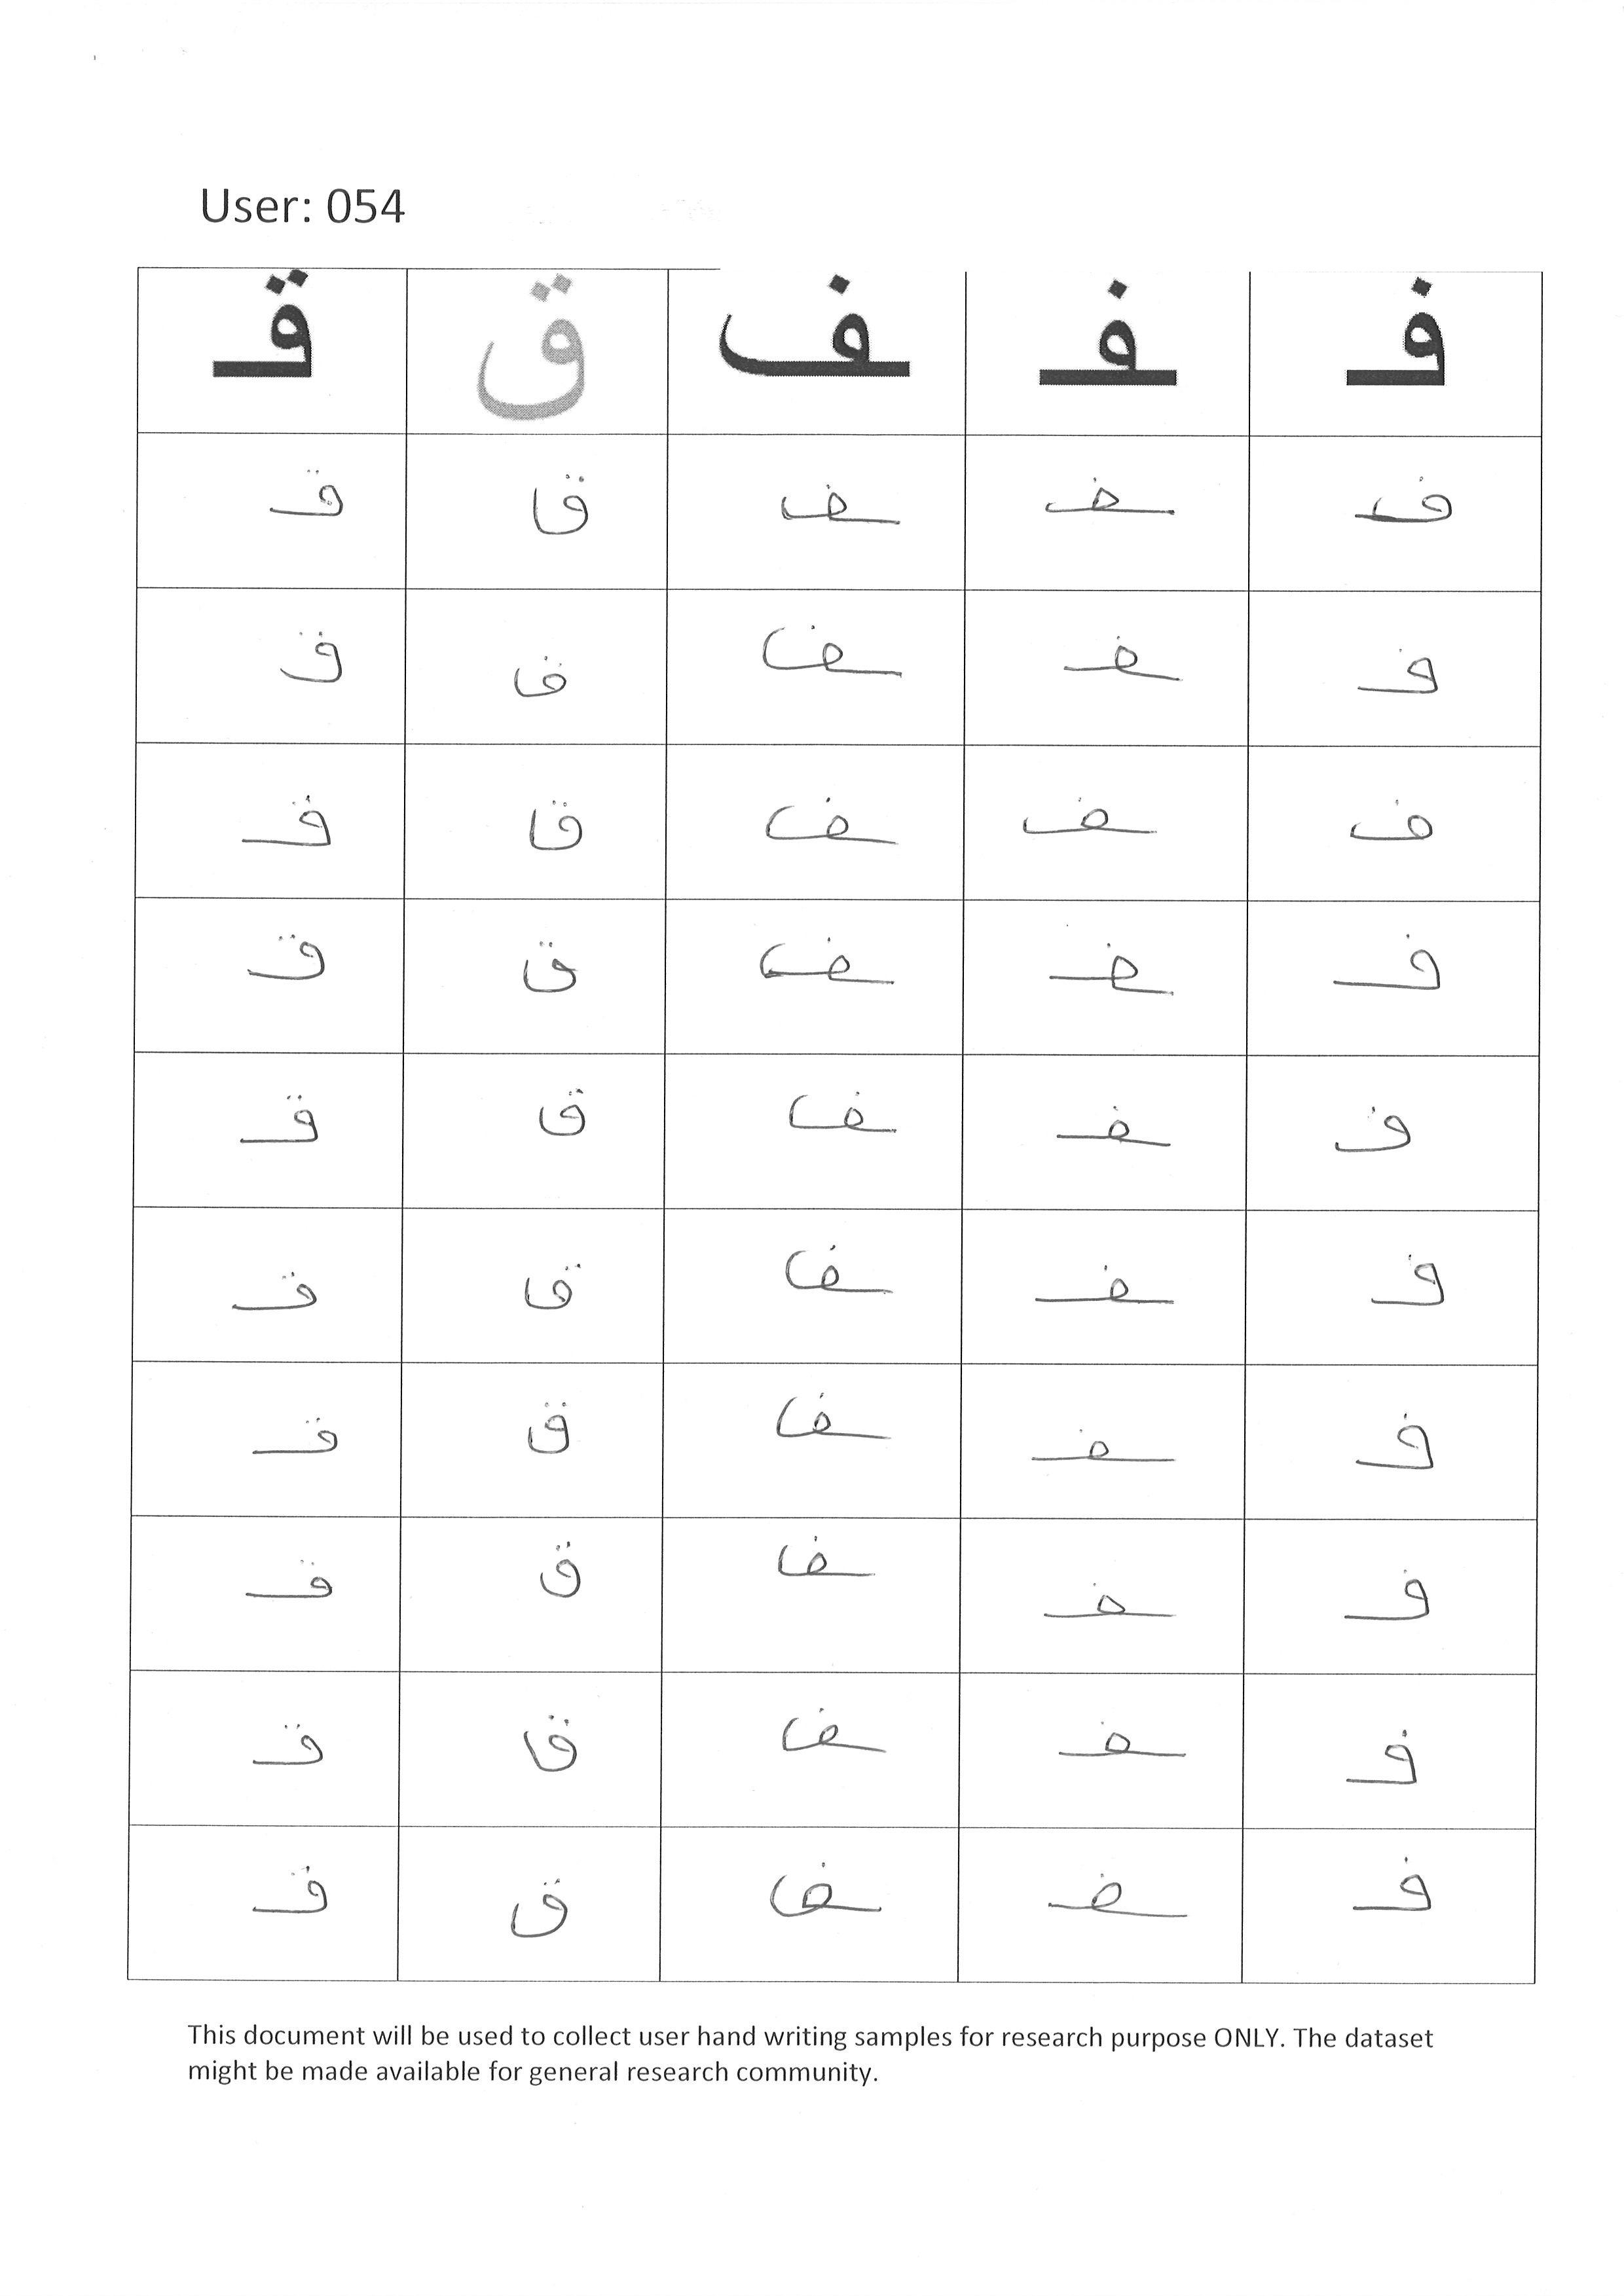 User: 054
فـ ـفـ ـف ق قـ
فـ ـفـ ـف ق قـ
فـ ـفـ ـف ق قـ
فـ ـفـ ـف ق قـ
فـ ـفـ ـف ق قـ
فـ ـفـ ـف ق قـ
فـ ـفـ ـف ق قـ
فـ ـفـ ـف ق قـ
فـ ـفـ ـف ق قـ
فـ ـفـ ـف ق قـ
فـ ـفـ ـف ق قـ
This document will be used to collect user hand writing samples for research purpose ONLY. The dataset
might be made available for general research community.